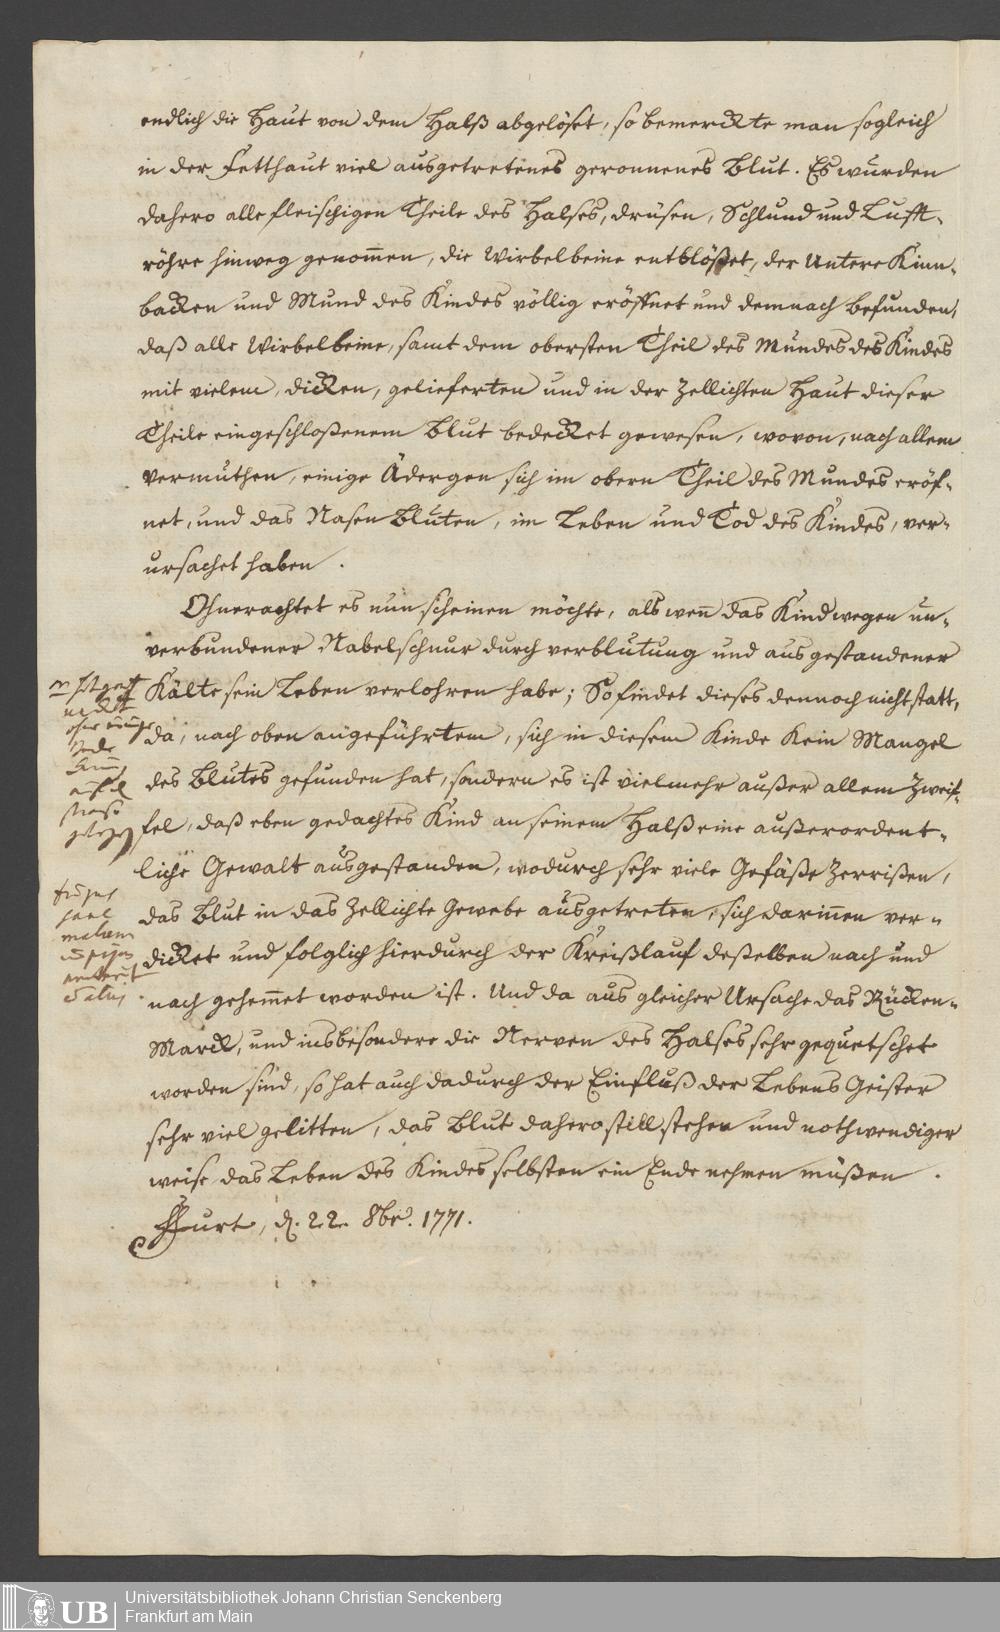 endlich die Haut von dem Halß abgelöset, so bemerckte man sogleich
in der Fetthaut viel ausgetretenes geronnenes Blut. Es wurden
dahero alle fleischigen Theile des Halses, drüsen, Schlund und Lufft-
röhre hinweg genom̄en, die Wirbelbeine entblößet, der Untere Kinn-
backen und Mund des Kindes völlig eröffnet und demnach befunden,
daß alle Wirbelbeine, samt dem obersten Theil des Mundes des Kindes
mit vielem, dicken, gelieferten und in der Zellichten Haut dieser
Theile eingeschloßenem Blut bedecket gewesen, wovon, nach allem
vermuthen, einige Ädergen sich im obern Theil des Mundes eröf-
net, und das Nasen Bluten, im Leben und Tod des Kindes, ver-
ursachet haben.
Ohnerachtet es nun scheinen möchte, als wen̄ das Kind wegen un-
verbundener Nabelschnur durch verblutung und ausgestandener
Kälte sein Leben verlohren habe; So findet dieses dennoch nicht statt,
da, nach oben angeführtem, sich in diesem Kinde kein Mangel
des Blutes gefunden hat, sondern es ist vielmehr außer allem Zweif-
fel, daß eben gedachtes Kind an seinem Halß eine außerordent-
liche Gewalt ausgestanden, wodurch sehr viele Gefäße Zerrißen,
das Blut in das Zellichte Gewebe ausgetreten, sich darin̄en ver-
dicket und folglich hierdurch der Kreißlauf deßelben nach und
nach gehem̄et worden ist. Und da aus gleicher Ursache das Rücken-
Marck, und insbesondere die Nerven des Halses sehr gequetschet
worden sind, so hat auch dadurch der Einfluß der Lebens Geister
sehr viel gelitten, das Blut dahero still stehen und nothwendiger
weise das Leben des Kindes selbsten ein Ende nehmen müßen.
Ffurt, d. 22. 8br. 1771.
Universitätsbibliothek Johann Christian Senckenberg
Frankfurt am Main
UB